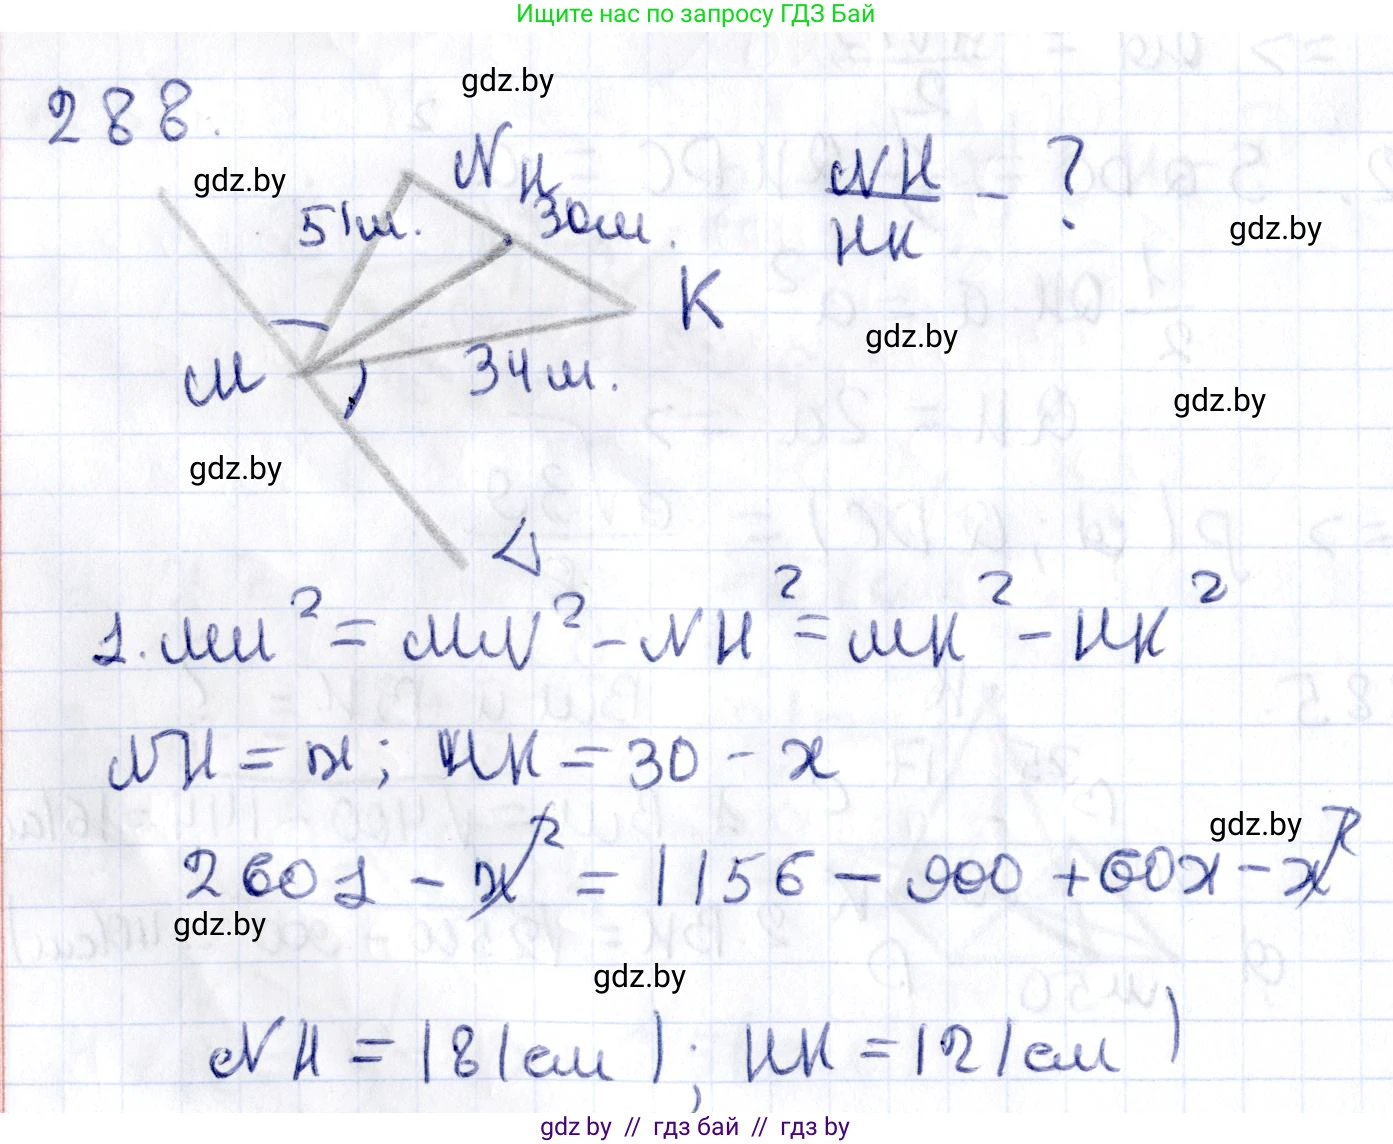 Ищите нас по запросу ГДЗ Бай
gdz.by
288.
gdz.by
N
H
NH/HK - ?
51м.
30м.
gdz.by
K
gdz.by
M
34м.
gdz.by
gdz.by
1. MH² = MN² - NH² = MK² - HK²
NH = x; HK = 30 - x
gdz.by
2601 - x² = 1156 - 900 + 60x - x²
gdz.by
gdz.by
NH = 18 (см); HK = 12 (см)
gdz.by // гдз бай // гдз by